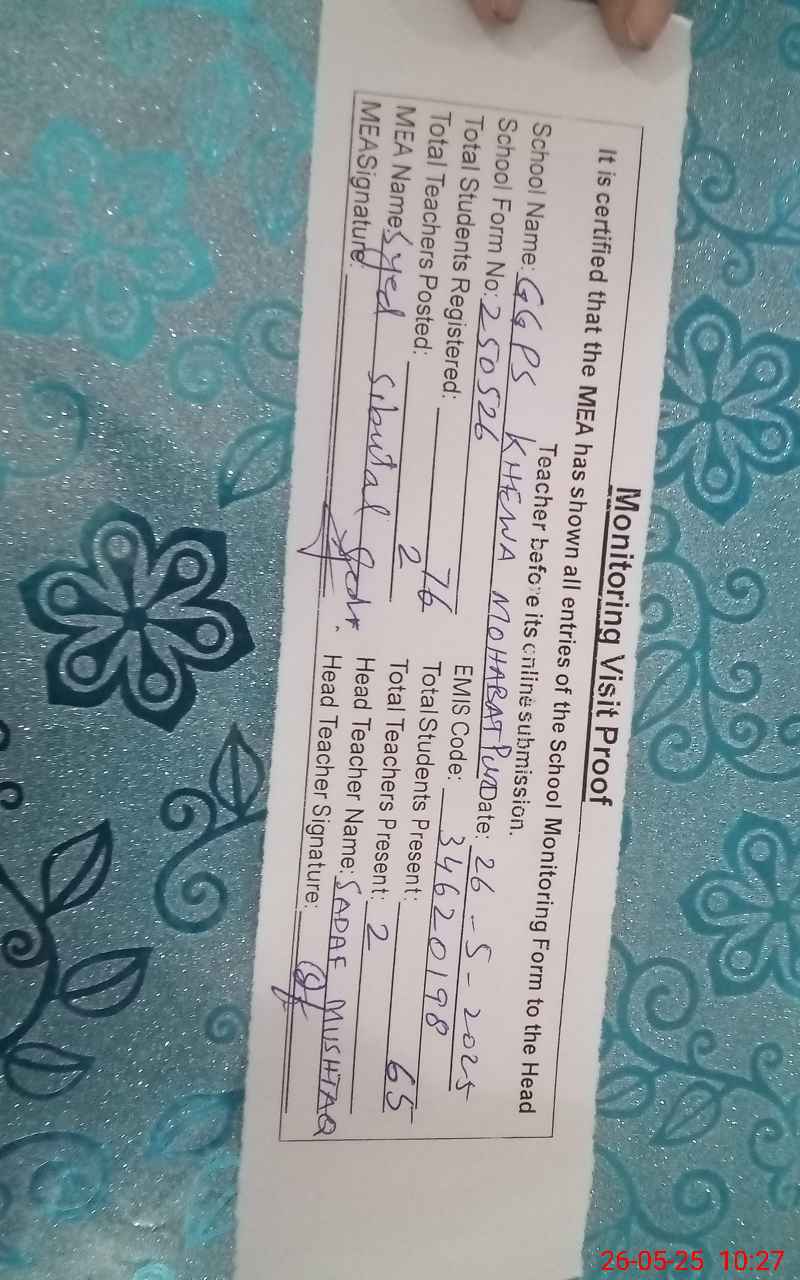 Monitoring Visit Proof
It is certified that the MEA has shown all entries of the School Monitoring Form to the Head
Teacher before its online submission.
School Name: GGPS KHEWA MOHABAT PUR Date: 26-5-2025
School Form No: 250526 EMIS Code: 34620198
Total Students Registered: 76 Total Students Present: 65
Total Teachers Posted: 2 Total Teachers Present: 2
MEA Name: Syed Head Teacher Name: SADAF MUSHTAQ
MEASignature: Head Teacher Signature:
26-05-25 10:27